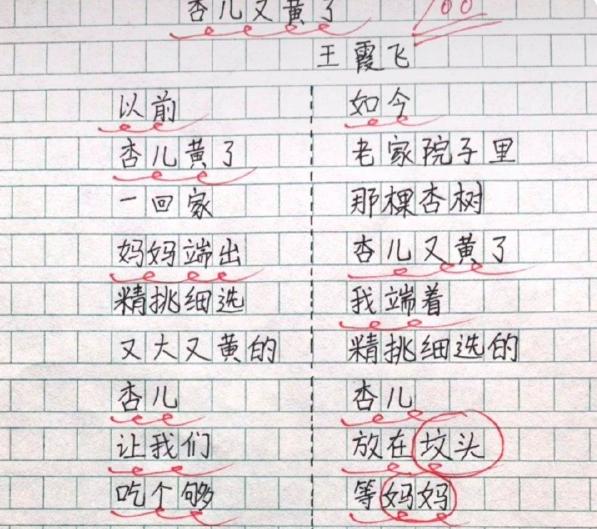 杏儿又黄了
100
王霞飞
以前
杏儿黄了
一回家
妈妈端出
精挑细选
又大又黄的
杏儿
让我们
吃个够
如今
老家院子里
那棵杏树
杏儿又黄了
我端着
精挑细选的
杏儿
放在坟头
等妈妈